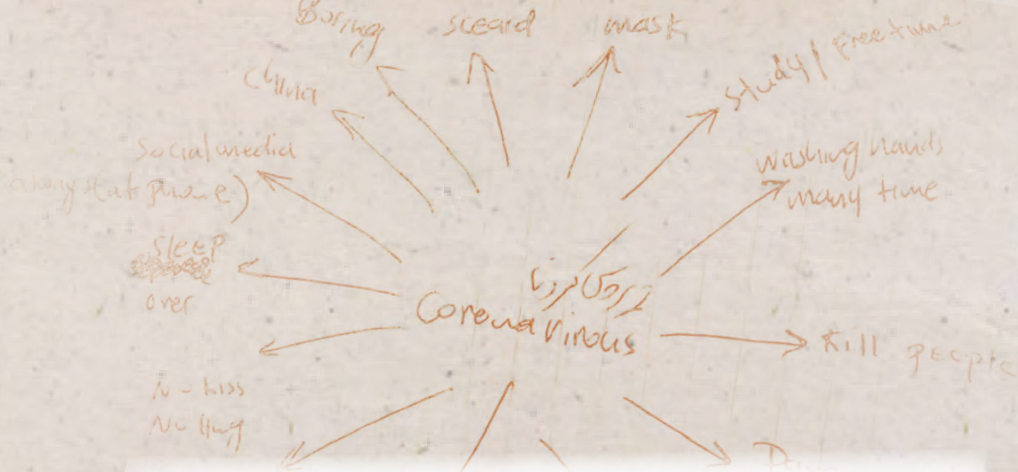 Boring
sceard
mask
study / free time
China
social media
phone)
washing hands
many time
sleep
over
Corona virous
kill people
No kiss
No hug